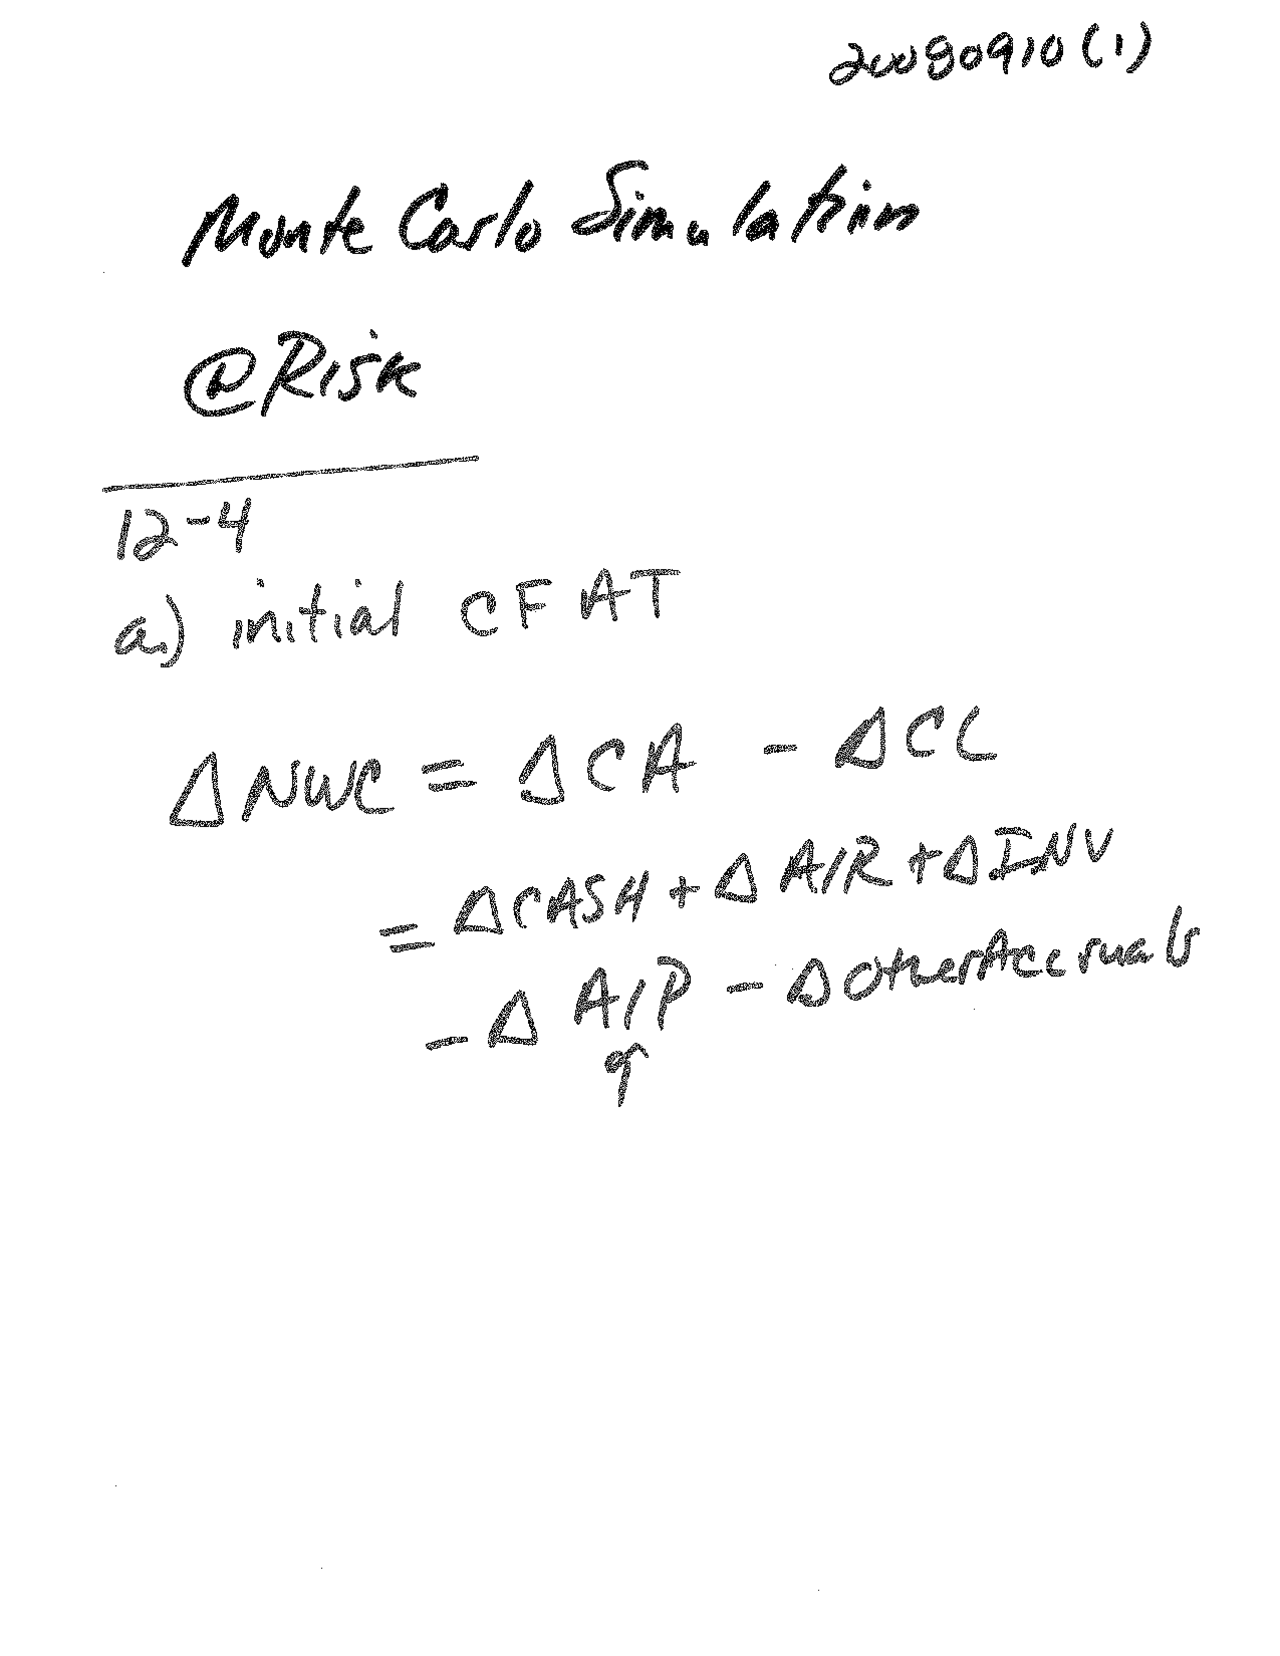 20080910 (1)
Monte Carlo Simulation
@Risk
12-4
a.) initial CFAT
Δ NWC = Δ CA - Δ CL
= Δ CASH + Δ A/R + Δ INV
- Δ A/P - Δ Other Accruals